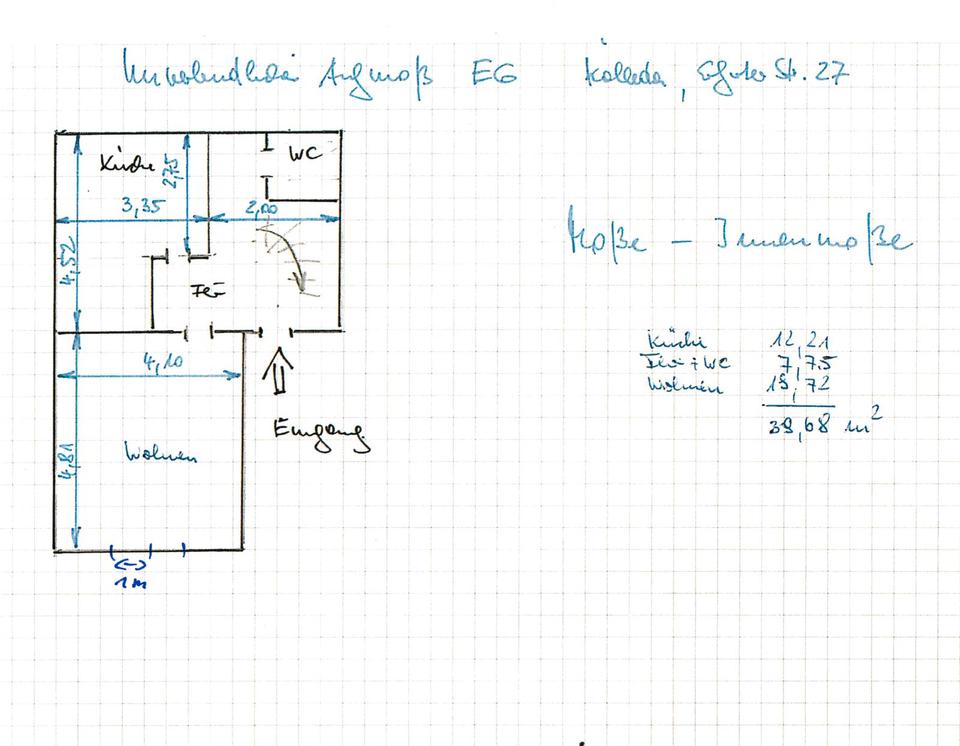 Unverbindliches Aufmaß EG Kölleda, Erfurter Str. 27
Küche
WC
2,75
3,35
2,00
4,52
Flur
4,10
Eingang
4,81
Wohnen
1m
Maße – Innenmaße
Küche 12,21
Flur + WC 7,75
Wohnen 19,72
39,68 m²